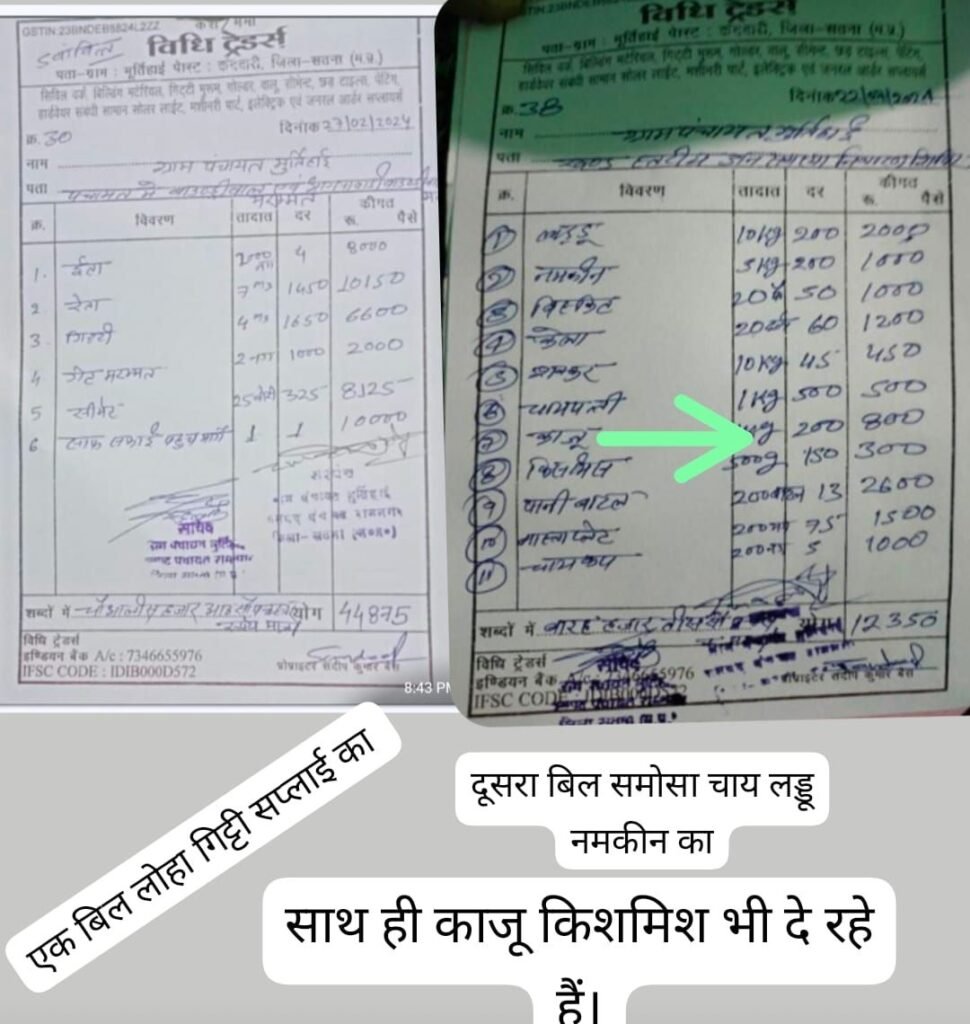 GSTIN 23BNDEB5824L2ZZ
विधि ट्रेडर्स
पता-ग्राम : मूर्तिहाई पोस्ट : कंदवारी, जिला-सतना (म.प्र.)
सिविल वर्क, बिल्डिंग मटेरियल, गिट्टी मुरूम, गोल्डर, वालू, सीमेन्ट, छड़ टाइल्स, पेंटिंग,
हार्डवेयर संबंधी सामान सोलर लाईट, मशीनरी पार्ट, इलेक्ट्रिक एवं जनरल आर्डर सप्लायर्स
क्र. 30 दिनांक 27/02/2024
नाम ग्राम पंचायत मुर्तिहाई
पता पंचायत मे बाउन्ड्रीवाल एवं
क्र. विवरण तादात दर कीमत
रू. पैसे
1. ईंटा 4 8000
2 रेता 7 1450 10150
3. गिट्टी 4 1650 6600
4 गेट मरम्मत 2 नग 1000 2000
5 सीमेंट 25 बोरी 325 8125
6 साफ सफाई 1 1 10000
सरपंच
सचिव
शब्दों में चौआलीस हजार आठ सौ योग 44875
विधि ट्रेडर्स
इण्डियन बैंक A/c : 7346655976
IFSC CODE : IDIB000D572
प्रोप्राइटर संदीप कुमार बैस
8:43 PM
विधि ट्रेडर्स
पता-ग्राम : मूर्तिहाई पोस्ट : कंदवारी, जिला-सतना (म.प्र.)
सिविल वर्क, बिल्डिंग मटेरियल, गिट्टी मुरूम, गोल्डर, वालू, सीमेन्ट, छड़ टाइल्स, पेंटिंग,
हार्डवेयर संबंधी सामान सोलर लाईट, मशीनरी पार्ट, इलेक्ट्रिक एवं जनरल आर्डर सप्लायर्स
क्र. 38 दिनांक
नाम ग्राम पंचायत मुर्तिहाई
पता
क्र. विवरण तादात दर कीमत
रू. पैसे
1 लड्डू 10 kg 200 2000
2 नमकीन 5 kg 200 1000
3 बिस्किट 20 50 1000
4 केला 20 दर्जन 60 1200
5 शक्कर 10 kg 45 450
6 चायपत्ती 1 kg 500 500
7 काजू kg 200 800
8 किसमिस 500g 150 300
9 पानी बाटल 200 13 2600
10 नास्ता प्लेट 200 75 1500
11 चाय कप 200 5 1000
शब्दों में बारह हजार तीन सौ योग 12350
विधि ट्रेडर्स
इण्डियन बैंक A/c : 7346655976
IFSC CODE : IDIB000D572
सचिव
प्रोप्राइटर संदीप कुमार बैस
एक बिल लोहा गिट्टी सप्लाई का
दूसरा बिल समोसा चाय लड्डू
नमकीन का
साथ ही काजू किशमिश भी दे रहे
हैं।